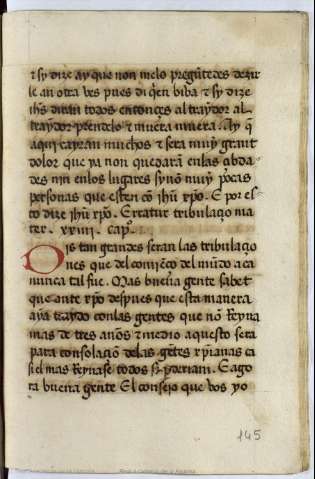 ⁊ sy dize ay que non melo preguntedes dezir
le an otra ves pues di qen biba ⁊ sy dize
ihs diran todos entonces al traydor al
traydor prendelo ⁊ muera muera. Ay q̄
aqui cayran muchos ⁊ sera muy grant
dolor que ya non quedara enlas abda
des nin enlos lugares synō muy pocas
personas que esten cō ihū xp̄o. E por es
to dize ihū xp̄o. Erratur tribulaçio ma
ter. xxiiii. capº.
Ois tan grandes seran las tribulaçio
nes que del comieço del mūdo aca
nunca tal fue. Mas buena gente sabet
que ante xp̄o despues que esta manera
aya traydo conlas gentes que nō Reyna
mas de tres anos ⁊ medio aquesto sera
para consolaciō delas gētes xp̄ianas ca
si el mas Reynase todos se perderian. E ago
ra buena gente El consejo que vos yo
145